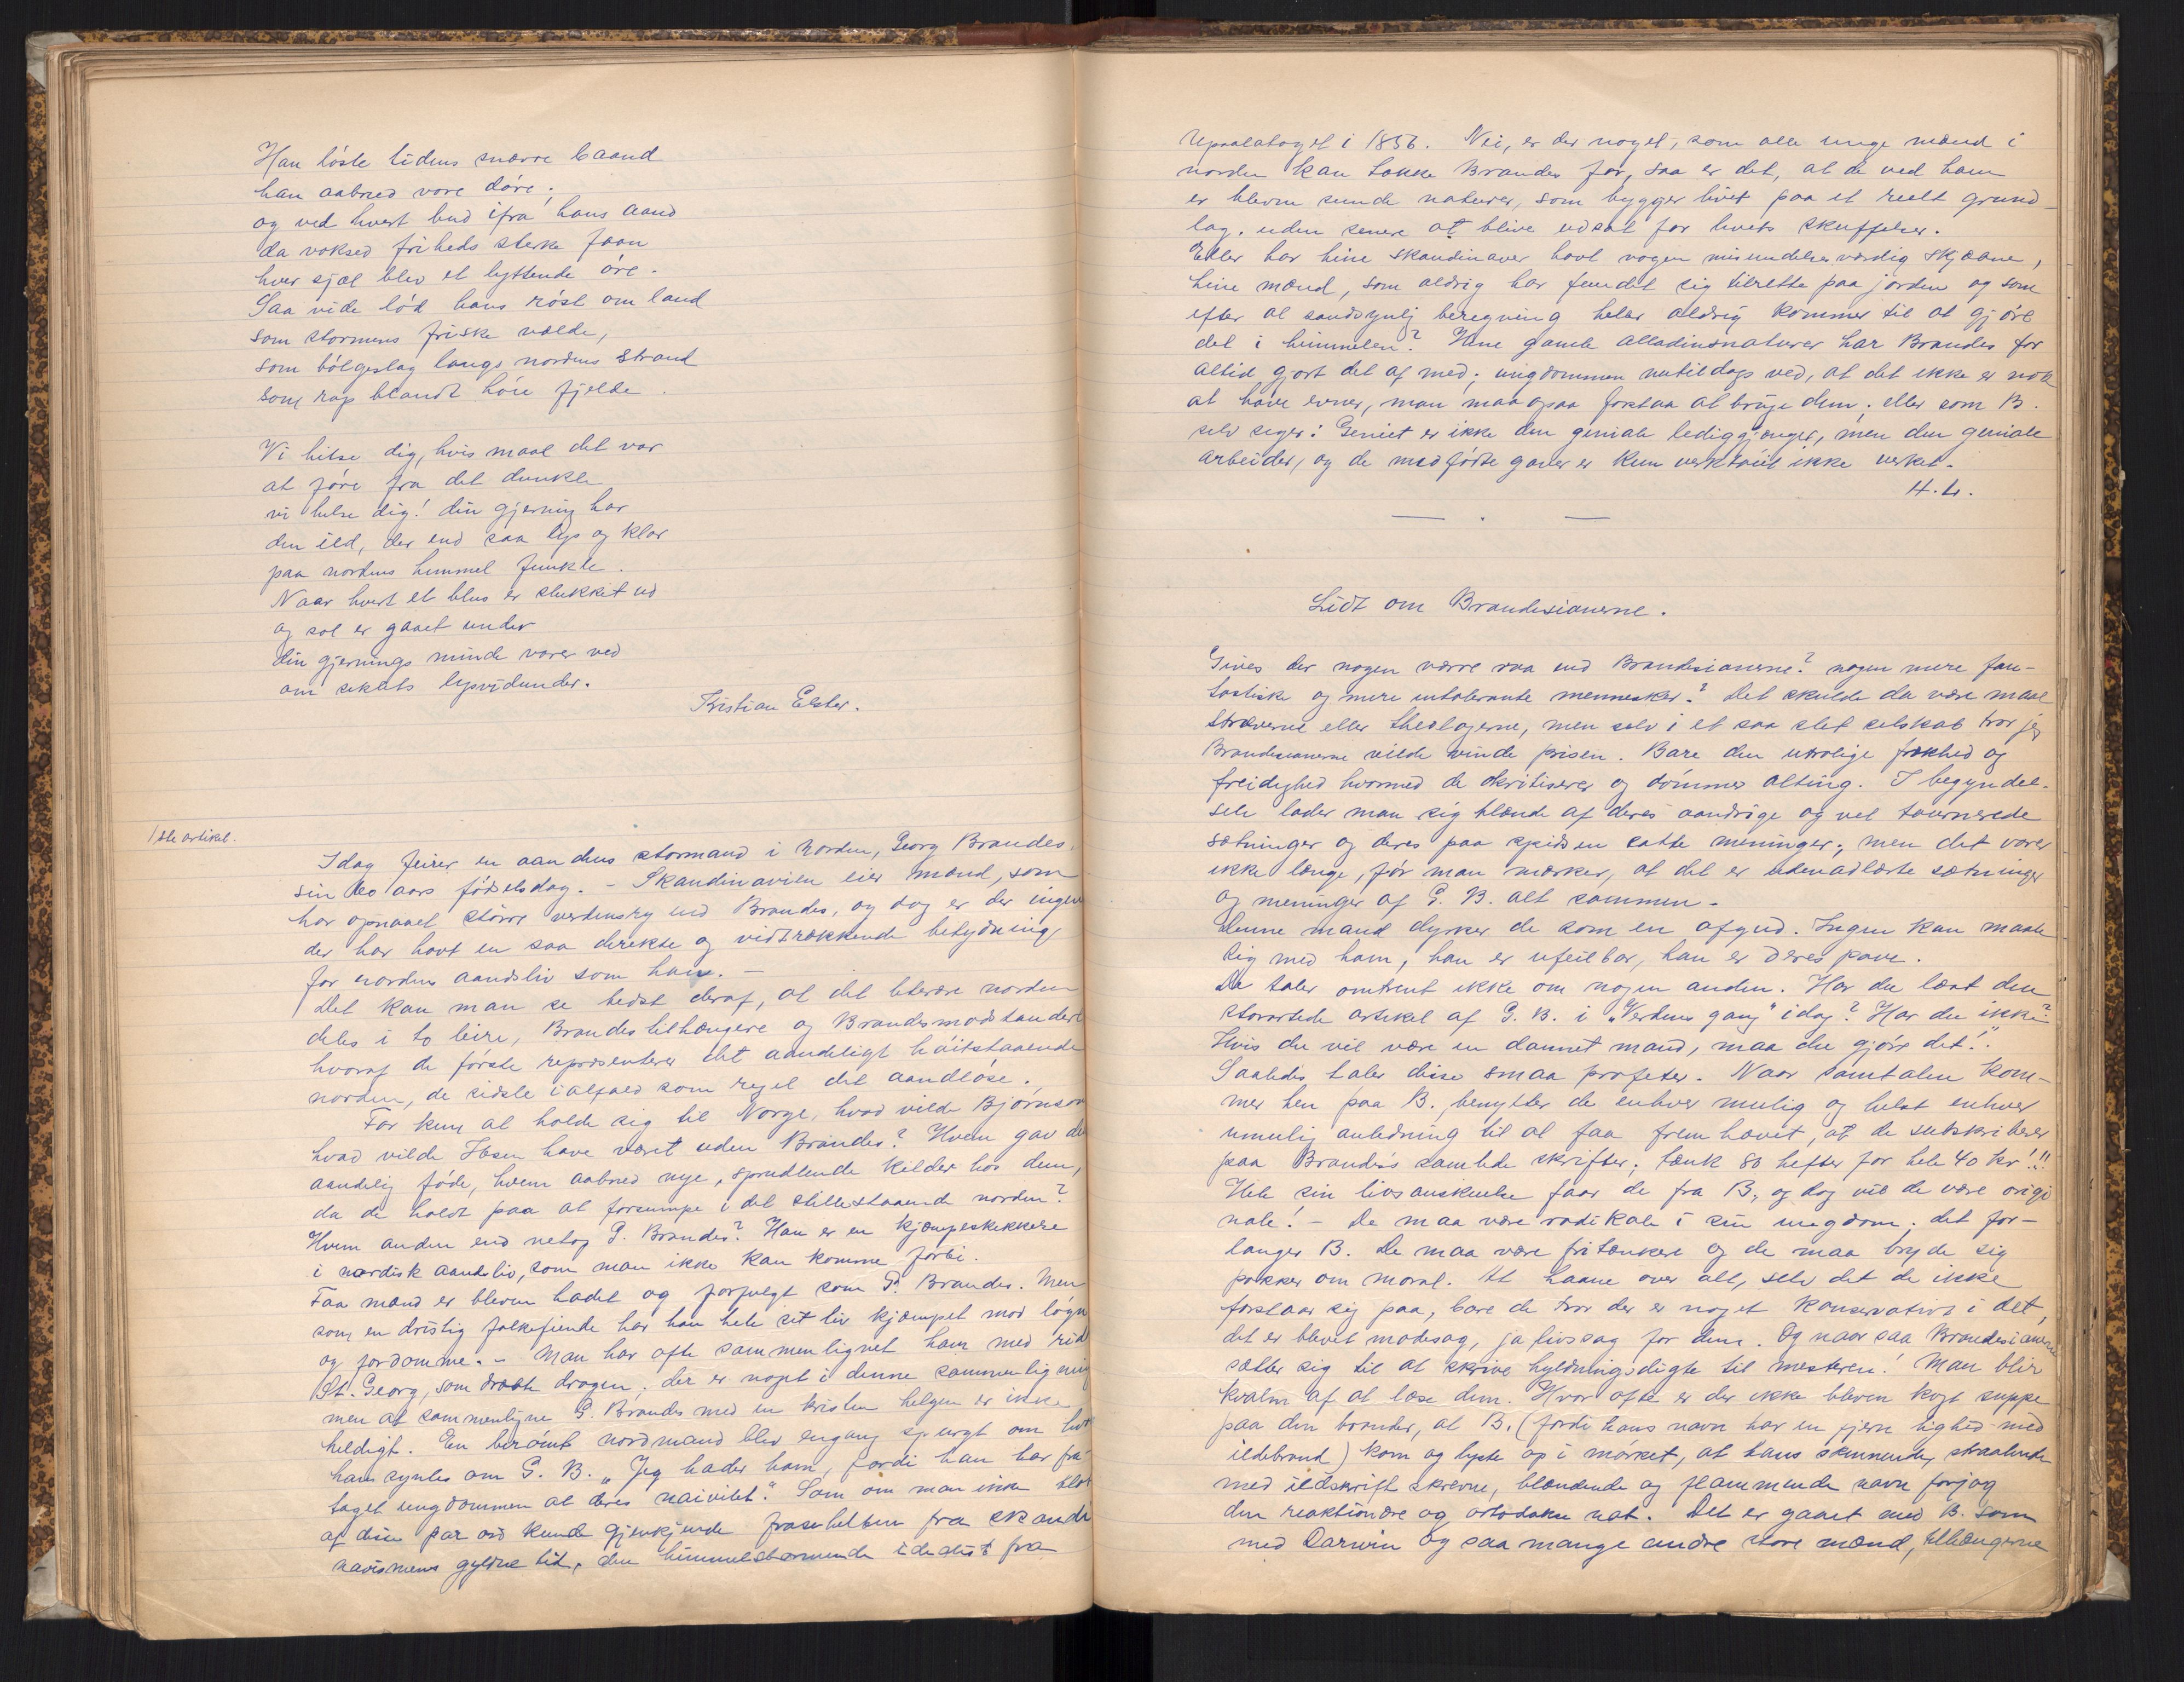 Han løste tidens snærre baand
han aabned vore døre;
og ved hvert bud ifra hans aand
da voksed friheds sterke
hver sjæl blev et lyttende øre.
Saa vide lød hans røst om land
som stormens friske vælde,
som bølgeslag langs nordens strand
som rop blandt høie fjelde.
Vi hilse dig, hvis maal det var
at føre fra det dunkle
vi hilse dig! din gjerning har
den ild, der end saa lys og klar
paa nordens himmel funkle.
Naar hvert et blus er slukket ud
og sol er gaaet under
din gjernings minde varer ved
om seklets lysvidunder.
Kristian Elster.
1ste artikel.
Idag feirer en aandens stormand i Norden, Georg Brandes,
sin 60 aars fødselsdag. – Skandinavien eier mænd, som
har opnaaet større verdensry end Brandes, og dog er der ingen
der har havt en saa direkte og vidtrækkende betydning
for nordens aandsliv som han. –
Det kan man se bedst deraf, at det literære norden
deles i to leire, Brandestilhængere og Brandesmodstandere
hvoraf de første repræsenterer det aandeligt høitstaaende
norden, de sidste ialfald som regel det aandløse.
For kun at holde sig til Norge, hvad vilde Bjørnson
hvad vilde Ibsen have været uden Brandes? Hvem gav dem
aandelig føde, hvem aabned nye, sprudlende kilder hos dem,
da de holdt paa at forsumpe i det stillestaaende norden?
Hvem anden end netop G. Brandes? Han er en kjæmpeskikkelse
i nordisk aandsliv, som man ikke kan komme forbi.
Faa mænd er bleven hadet og forfulgt som G. Brandes. Men
som en dristig folkefiende har han hele sit liv kjæmpet mod løgn
og fordomme. – Man har ofte sammenlignet ham med rid
St. Georg, som dræbte dragen; der er noget i denne sammenligning
men at sammenligne G. Brandes med en kristen helgen er ikke
heldigt. En berømt nordmand blev engang spurgt om hvad
han syntes om G. B. „Jeg hader ham, fordi han har fra-
taget ungdommen al deres naivitet." Som om man ikke blot
af disse par ord kunde gjenkjende frasehelten fra skandi
navismens gyldne tid, den himmelstormende idealist fra
Upsalatoget i 1856. Nei, er der noget, som alle unge mænd i
norden kan takke Brandes for, saa er det, at de ved ham
er bleven sunde naturer, som bygger livet paa et reelt grund-
lag, uden senere at blive udsat for livets skuffelser.
Eller har hine skandinaver havt nogen misundelsesværdig skjæbne,
hine mænd, som aldrig har fundet sig tilrette paa jorden og som
efter al sandsynlig beregning heller aldrig kommer til at gjøre
det i himmelen? Hine gamle alladinsnaturer har Brandes for
altid gjort det af med; ungdommen nutildags ved, at det ikke er nok
at have evner, man maa ogsaa forstaa at bruge dem; eller som B.
selv siger: Geniet er ikke den geniale lediggjænger, men den geniale
arbeider, og de medførte gaver er kun verktøiet ikke verket.
H. L.
Lidt om Brandesianerne.
Gives der nogen værre raa end Brandesianerne? nogen mere fan-
tastiske og mere intolerante mennesker? Det skulde da være maal
stræverne eller theologerne, men selv i et saa slet selskab tror jeg
Brandesianerne vilde vinde prisen. Bare den utrolige frækhed og
freidighed hvormed de kritiserer og dømmer alting. I begyndel-
sen lader man sig blænde af deres aandrige og vel tournerede
sætninger og deres paa spidsen satte meninger; men det varer
ikke længe, før man mærker, at det er udenadlærte sætninger
og meninger af G. B. alt sammen. –
Denne mand dyrker de som en afgud. Ingen kan maale
sig med ham, han er ufeilbar, han er deres pave.
De taler omtrent ikke om nogen anden. Har du læst den
storartede artikel af G. B. i „Verdens gang" idag? Har du ikke?
Hvis du vil være en dannet mand, maa du gjøre det!"
Saaledes taler disse smaa profeter. Naar samtalen kom-
mer hen paa B. benytter de enhver mulig og helst enhver
umulig anledning til at faa fremhævet, at de subskriberer
paa Brandes's samlede skrifter; tænk 80 hefter for hele 40 kr!!!
Hele sin livsanskuelse faar de fra B, og dog vil de være origi
nale! – De maa være radikale i sin ungdom; det for-
langer B. De maa være fritænkere og de maa bryde sig
pokker om moral. At haane over alt, selv det de ikke
forstaar sig paa, bare de tror der er noget konservativt i det,
det er blevet modesag, ja livssag for dem. Og naar saa Brandesianerne
sætter sig til at skrive hyldningsdigte til mesteren! Man blir
kvalm af at læse dem. Hvor ofte er der ikke bleven kogt suppe
paa den brander, at B. (fordi hans navn har en fjern lighed med
ildebrand) kom og lyste op i mørket, at hans skinnende, straalende
med ildskrift skrevne, blændende og flammende navn forjog
den reaktionære og ortodokse nat. Det er gaaet med B. som
med Darwin og saa mange andre store mænd, tilhængerne